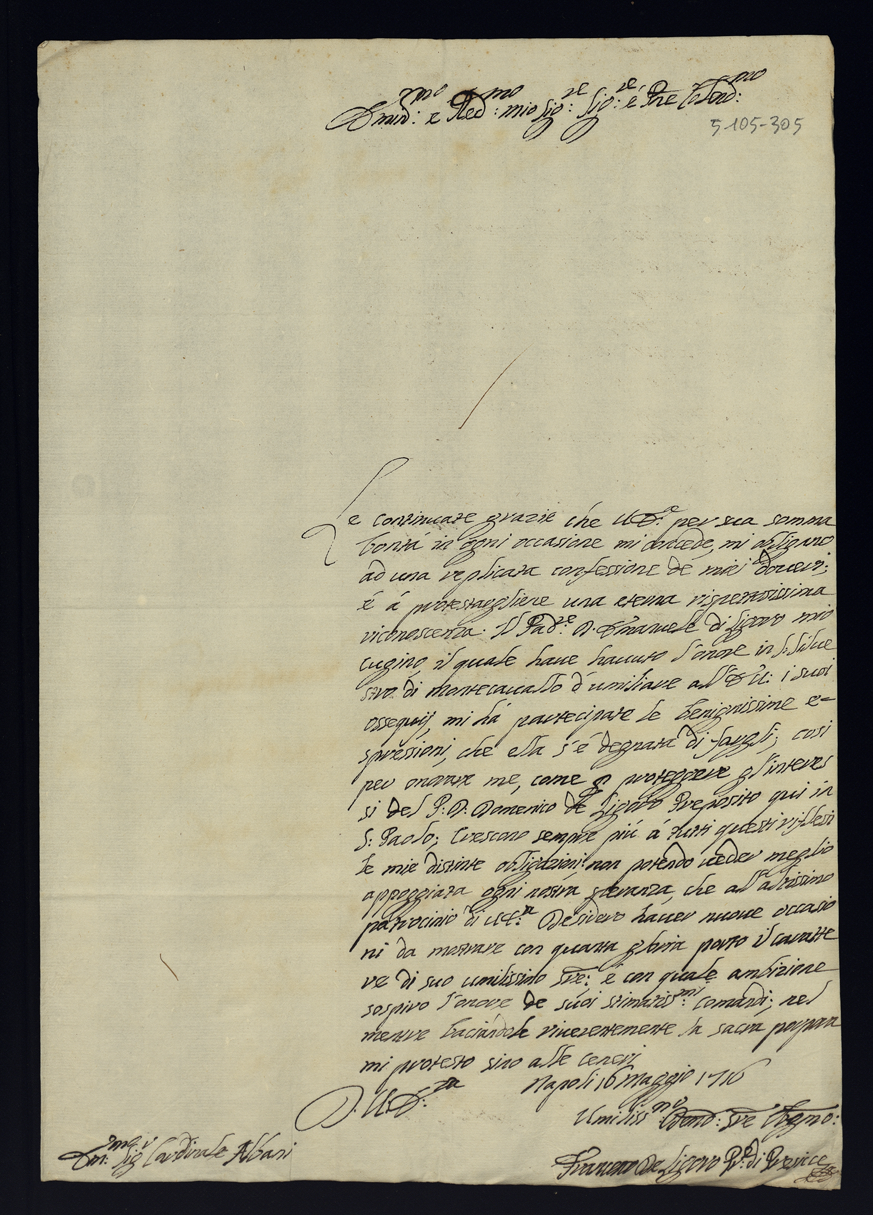 Emin:mo e Red:mo mio Sig:re Sig:re é Pne Colend:mo
5-105-305
Le continuate grazie che V.E.a per sua somma
bontá in ogni occasione mi concede, mi obligano
ad una replicata confessione de miei doveri;
é á protestargliene una eterna rispettosissima
riconoscenza. Il Pad:re D. Emanuele di Ligoro mio
cugino, il quale have havuto l'onore in
di montecavallo d'umiliare all'E.V: i suoi
ossequij, mi há partecipate le benignissime e-
spressioni, che ella s'é degnata di fargli; cosi
per onorare me, come proteggere gl'interes
si del P: D. Domenico de Ligoro Preposito qui in
S: Paolo; Crescono sempre piú á tutti questi riflessi
le mie distinte obligazioni non potendo veder meglio
appoggiata ogni nostra speranza, che all'altissimo
patrocinio di V.E.a Desidero haver nuove occasio
ni da mostrare con quanta gloria porto il caratte
re di suo umilissimo sre: é con quale ambizione
sospiro l'onore de suoi stimatiss:mi comandi; nel
mentre baciandole riverentemente la sacra porpora
mi protesto sino alle ceneri
D. V.E.:za Napoli 16 Maggio 1716
Umiliss:mo sre
Sig Cardinale Albani
Francesco De Ligoro P:e di Presicce